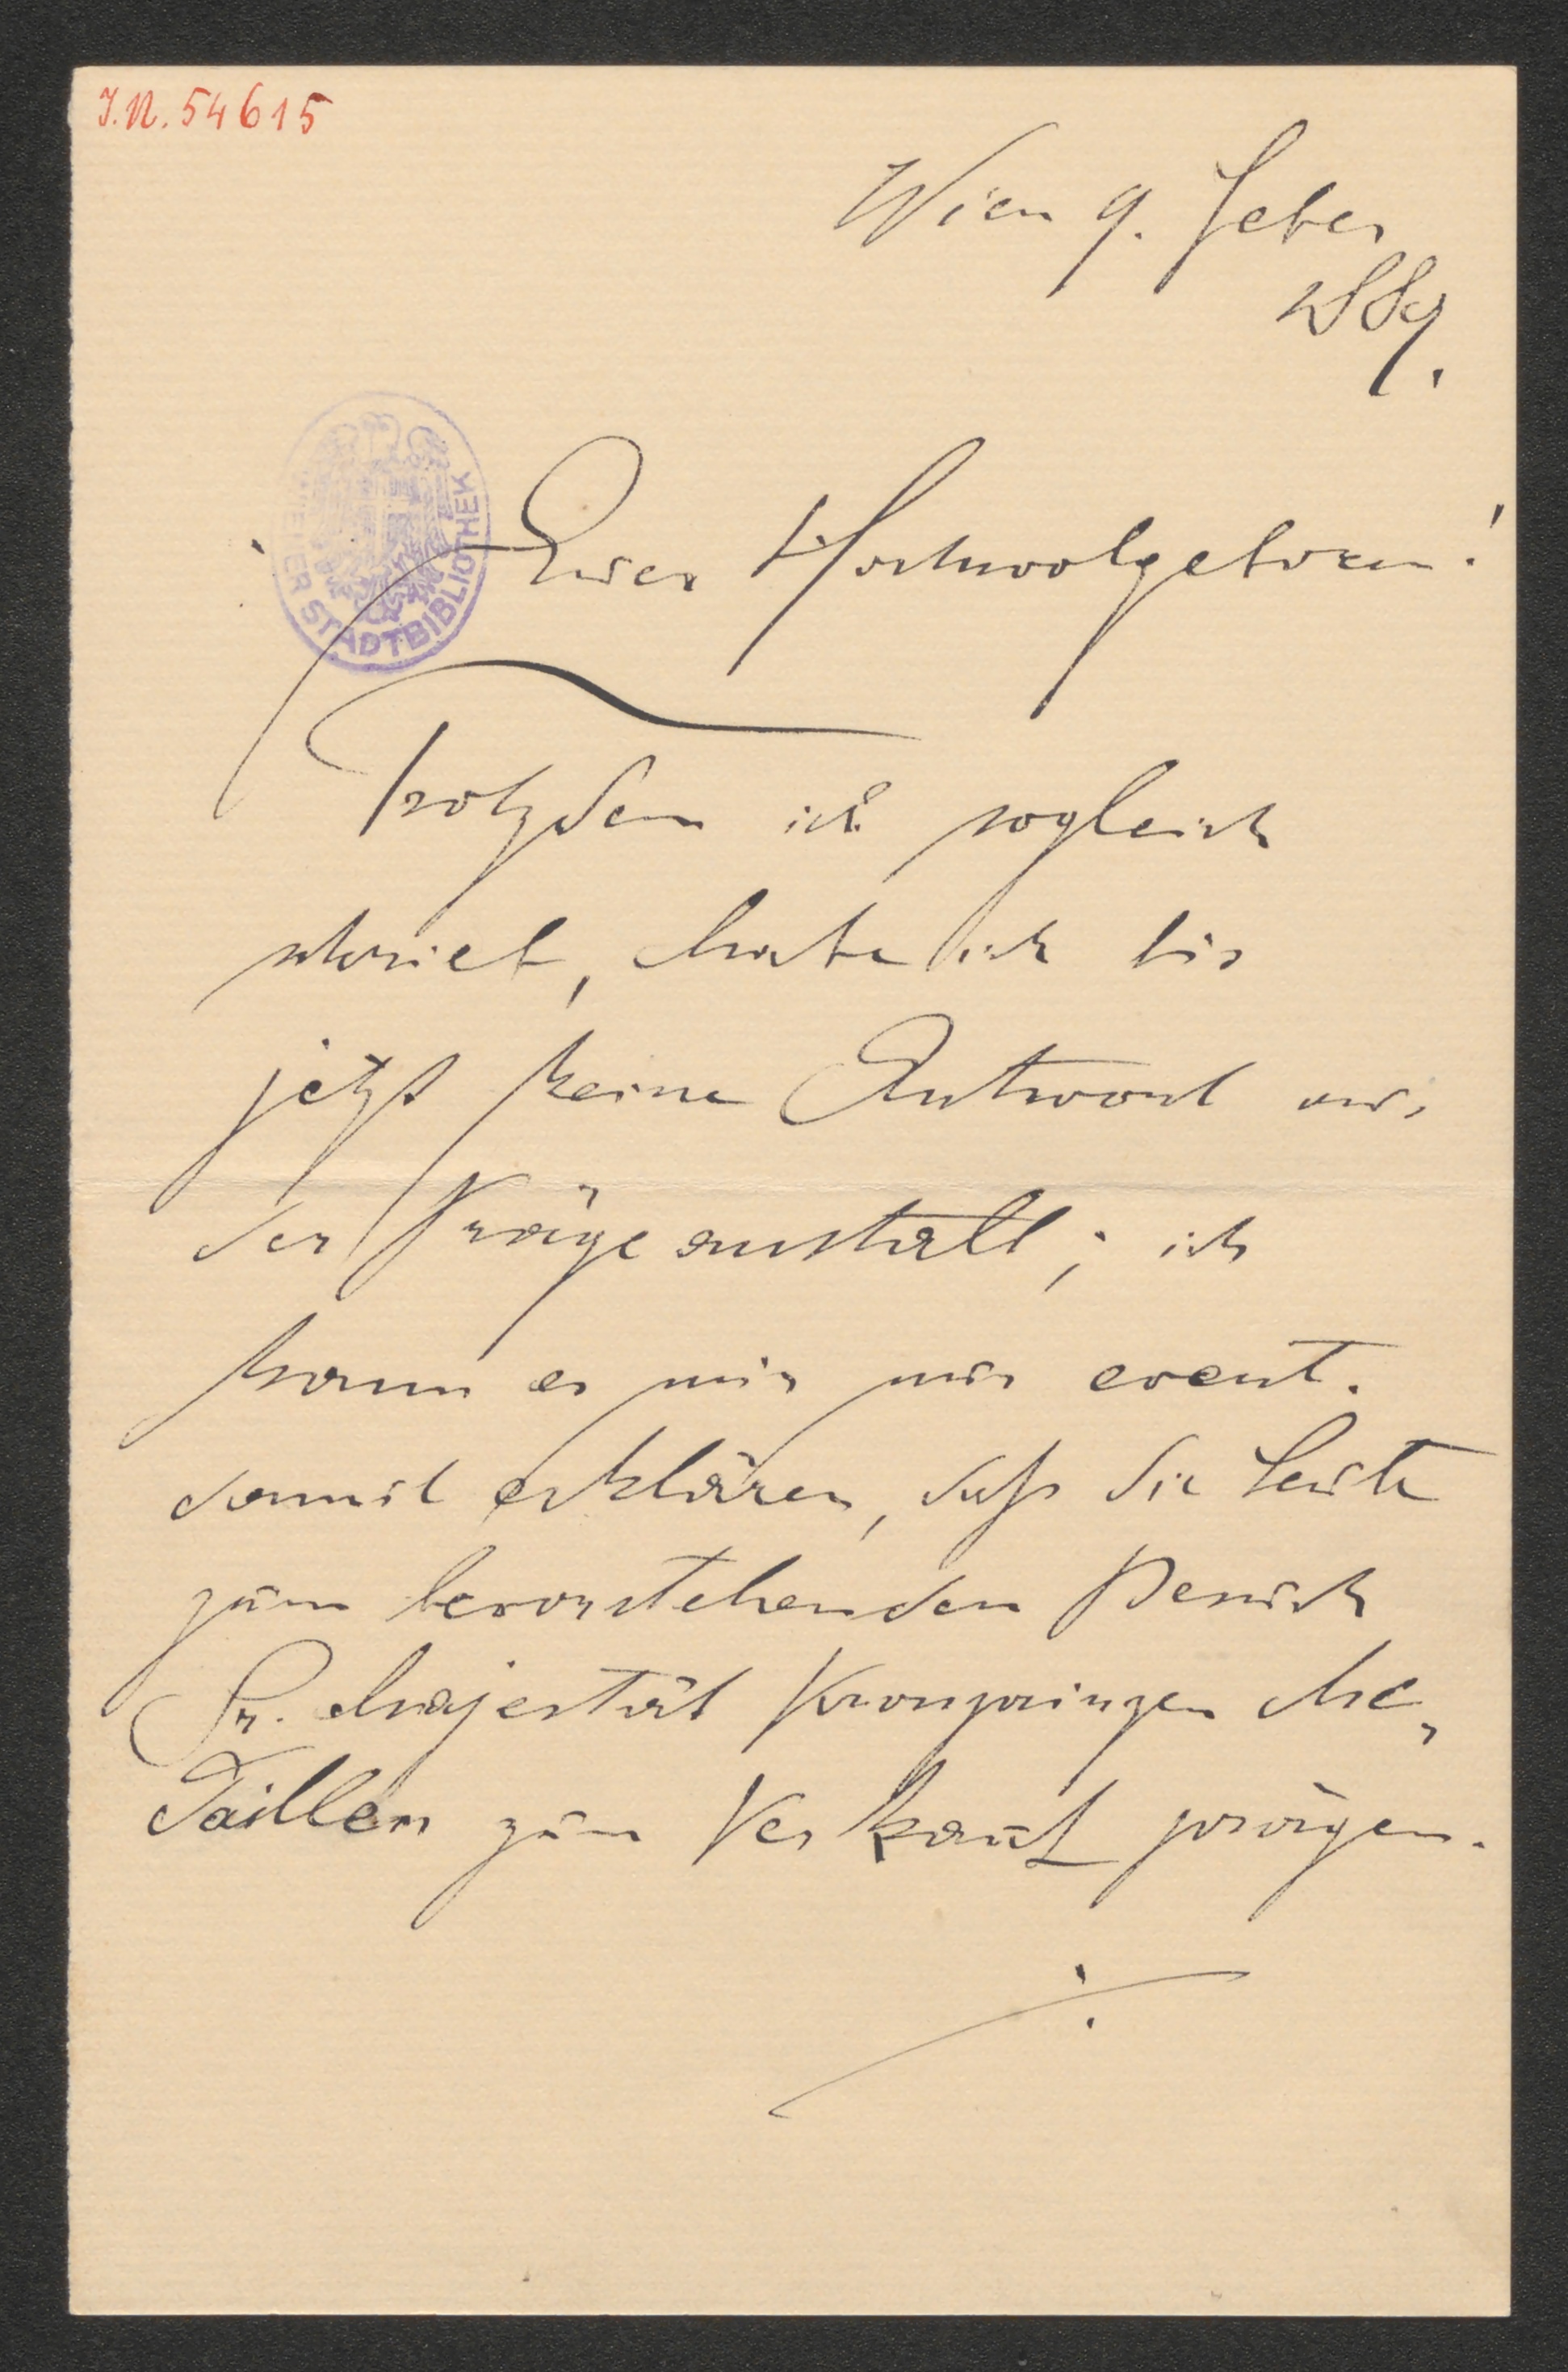 J.N. 54615
Wien 9. Feber
889.
WIENER STADTBIBLIOTHEK
Euer Hochwolgeboren!
Trotzdem ich sogleich
schrieb, habe ich bis
jetzt keine Antwort aus
der Prägeanstalt; ich
kann es mir nur event.
damit erklären, daß die Leute
zum bevorstehenden Besuch
Sr. Majestät Kronprinzen Me„
daillen zum Verkauf prägen.
./.